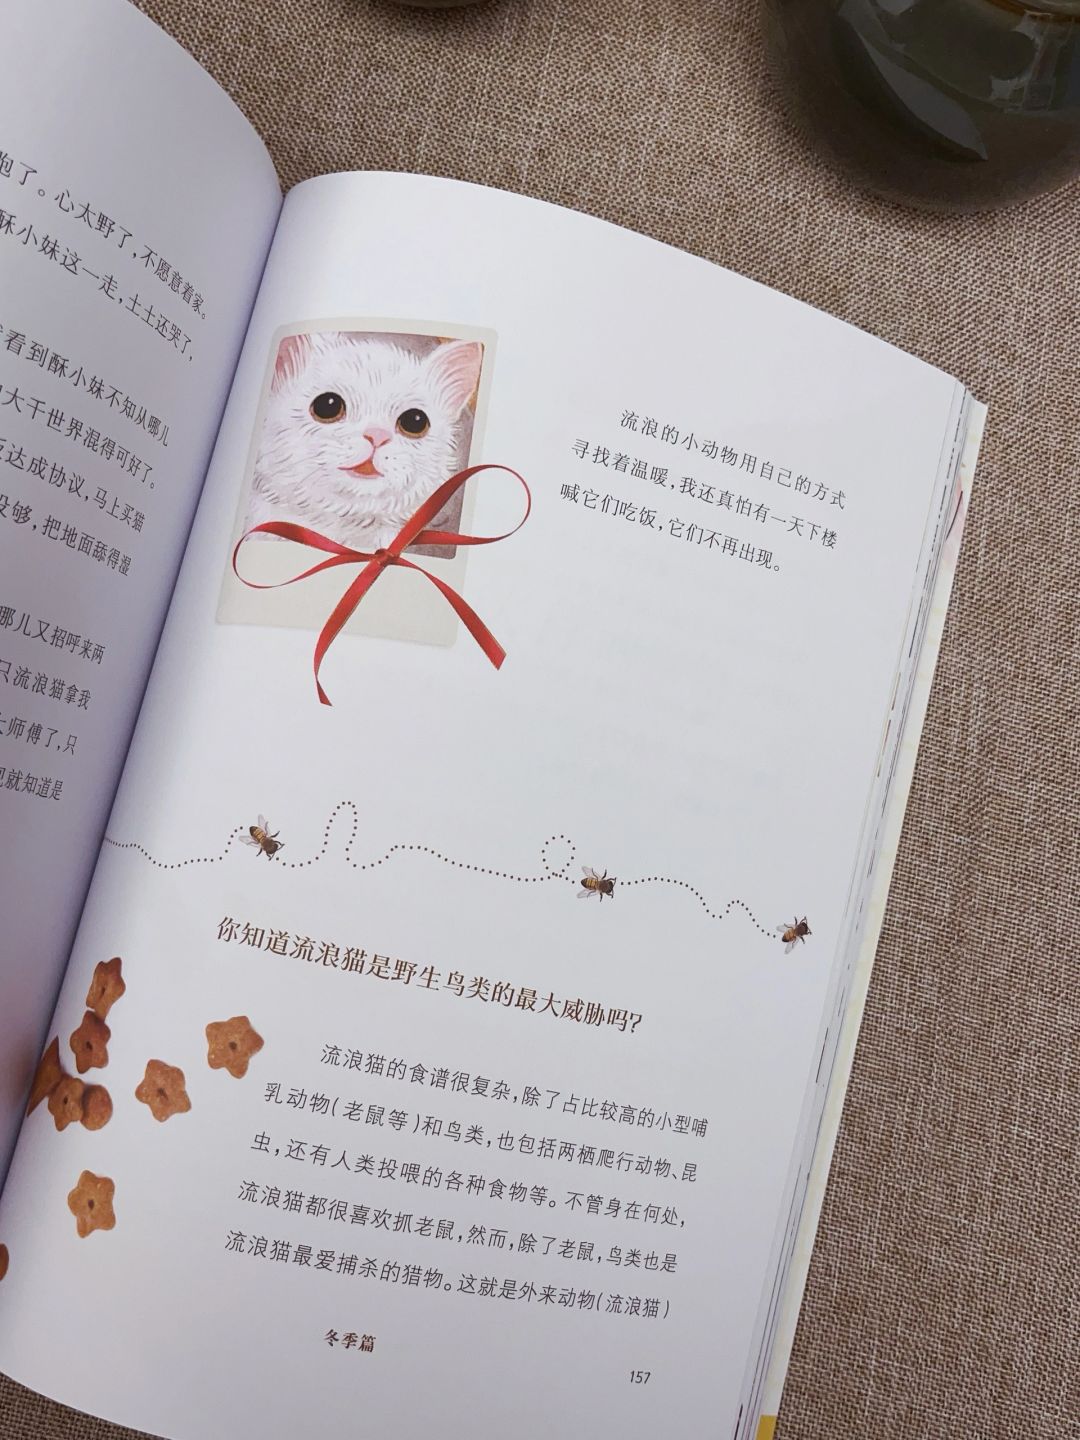 跑了。心太野了，不愿意着家。
酥小妹这一走，土土还哭了，
看到酥小妹不知从哪儿
大千世界混得可好了。
达成协议，马上买猫
没够，把地面舔得湿
哪儿又招呼来两
只流浪猫拿我
大师傅了，只
就知道是
流浪的小动物用自己的方式
寻找着温暖，我还真怕有一天下楼
喊它们吃饭，它们不再出现。
你知道流浪猫是野生鸟类的最大威胁吗？
流浪猫的食谱很复杂，除了占比较高的小型哺
乳动物（老鼠等）和鸟类，也包括两栖爬行动物、昆
虫，还有人类投喂的各种食物等。不管身在何处，
流浪猫都很喜欢抓老鼠，然而，除了老鼠，鸟类也是
流浪猫最爱捕杀的猎物。这就是外来动物（流浪猫）
冬季篇
157